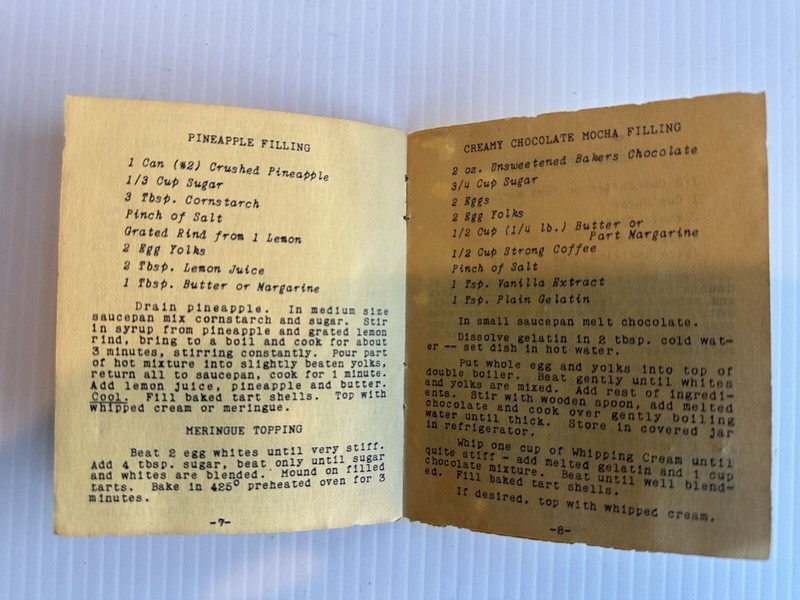 PINEAPPLE FILLING
1 Can (#2) Crushed Pineapple
1/3 Cup Sugar
3 Tbsp. Cornstarch
Pinch of Salt
Grated Rind from 1 Lemon
2 Egg Yolks
2 Tbsp. Lemon Juice
1 Tbsp. Butter or Margarine
Drain pineapple. In medium size
saucepan mix cornstarch and sugar. Stir
in syrup from pineapple and grated lemon
rind, bring to a boil and cook for about
3 minutes, stirring constantly. Pour part
of hot mixture into slightly beaten yolks,
return all to saucepan, cook for 1 minute.
Add lemon juice, pineapple and butter.
Cool. Fill baked tart shells. Top with
whipped cream or meringue.
MERINGUE TOPPING
Beat 2 egg whites until very stiff.
Add 4 tbsp. sugar, beat only until sugar
and whites are blended. Mound on filled
tarts. Bake in 425° preheated oven for 3
minutes.
-7-
CREAMY CHOCOLATE MOCHA FILLING
2 oz. Unsweetened Bakers Chocolate
3/4 Cup Sugar
2 Eggs
2 Egg Yolks
1/2 Cup (1/4 lb.) Butter or
Part Margarine
1/2 Cup Strong Coffee
Pinch of Salt
1 Tsp. Vanilla Extract
1 Tsp. Plain Gelatin
In small saucepan melt chocolate.
Dissolve gelatin in 2 tbsp. cold wat-
er -- set dish in hot water.
Put whole egg and yolks into top of
double boiler. Beat gently until whites
and yolks are mixed. Add rest of ingredi-
ents. Stir with wooden spoon, add melted
chocolate and cook over gently boiling
water until thick. Store in covered jar
in refrigerator.
Whip one cup of Whipping Cream until
quite stiff - add melted gelatin and 1 cup
chocolate mixture. Beat until well blend-
ed. Fill baked tart shells.
If desired, top with whipped cream.
-8-